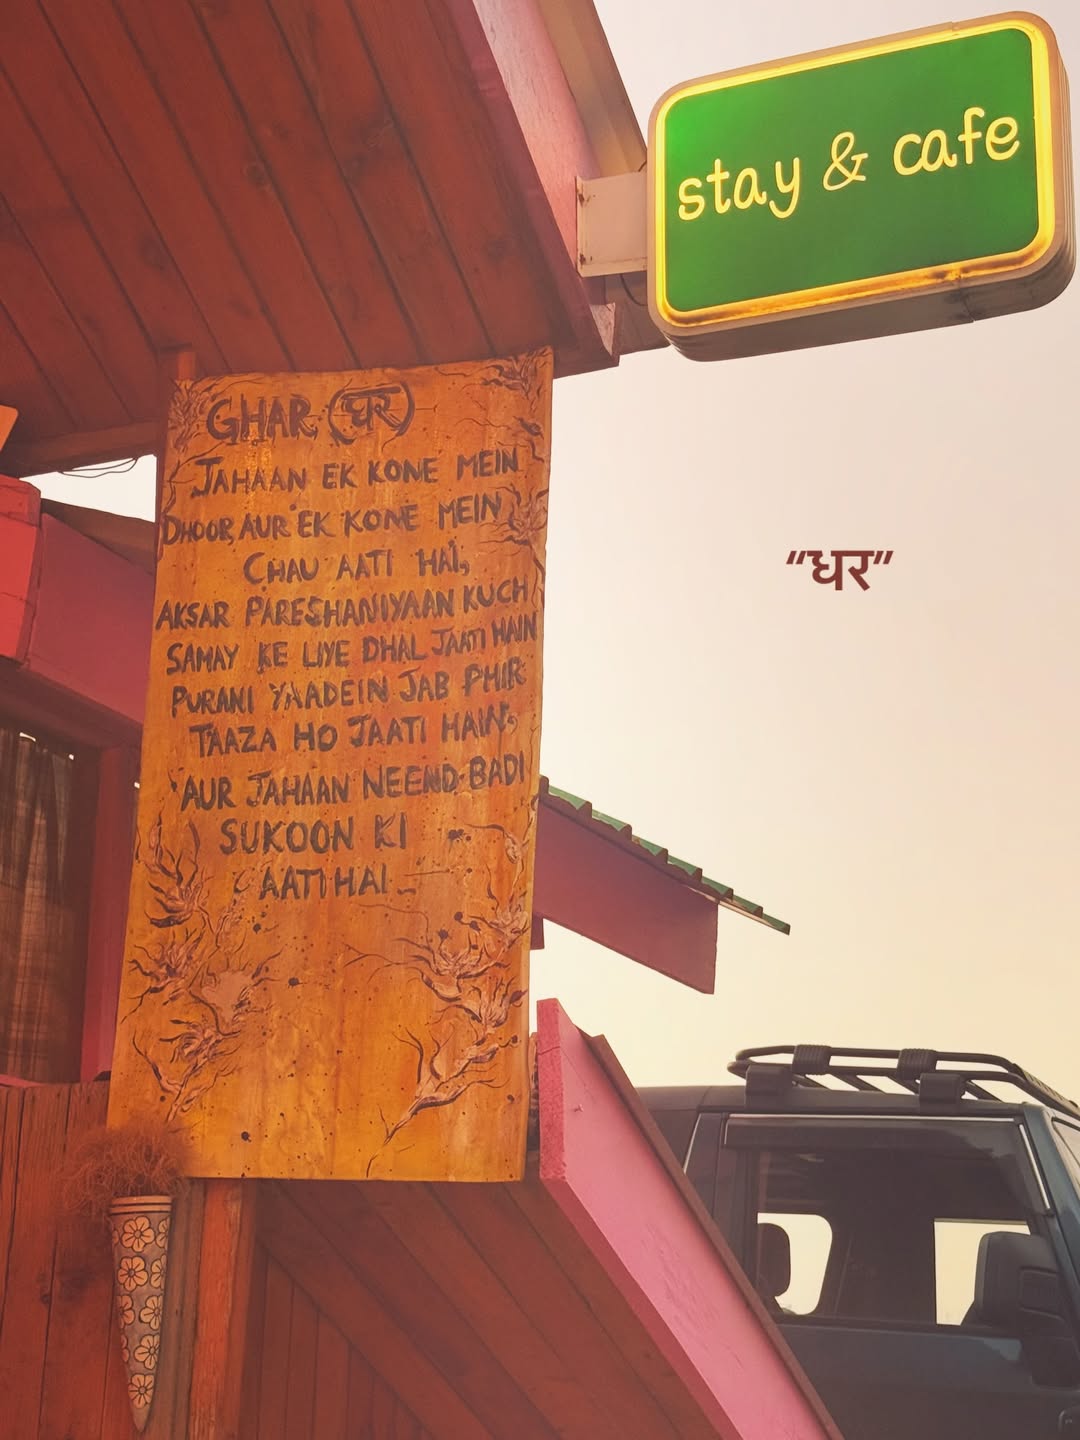 stay & cafe
GHAR (घर)
JAHAAN EK KONE MEIN
DHOOP, AUR EK KONE MEIN
CHAU AATI HAI,
AKSAR PARESHANIYAAN KUCH
SAMAY KE LIYE DHAL JAATI HAIN
PURANI YAADEIN JAB PHIR
TAAZA HO JAATI HAIN,
AUR JAHAAN NEEND BADI
SUKOON KI
AATI HAI _
“घर”